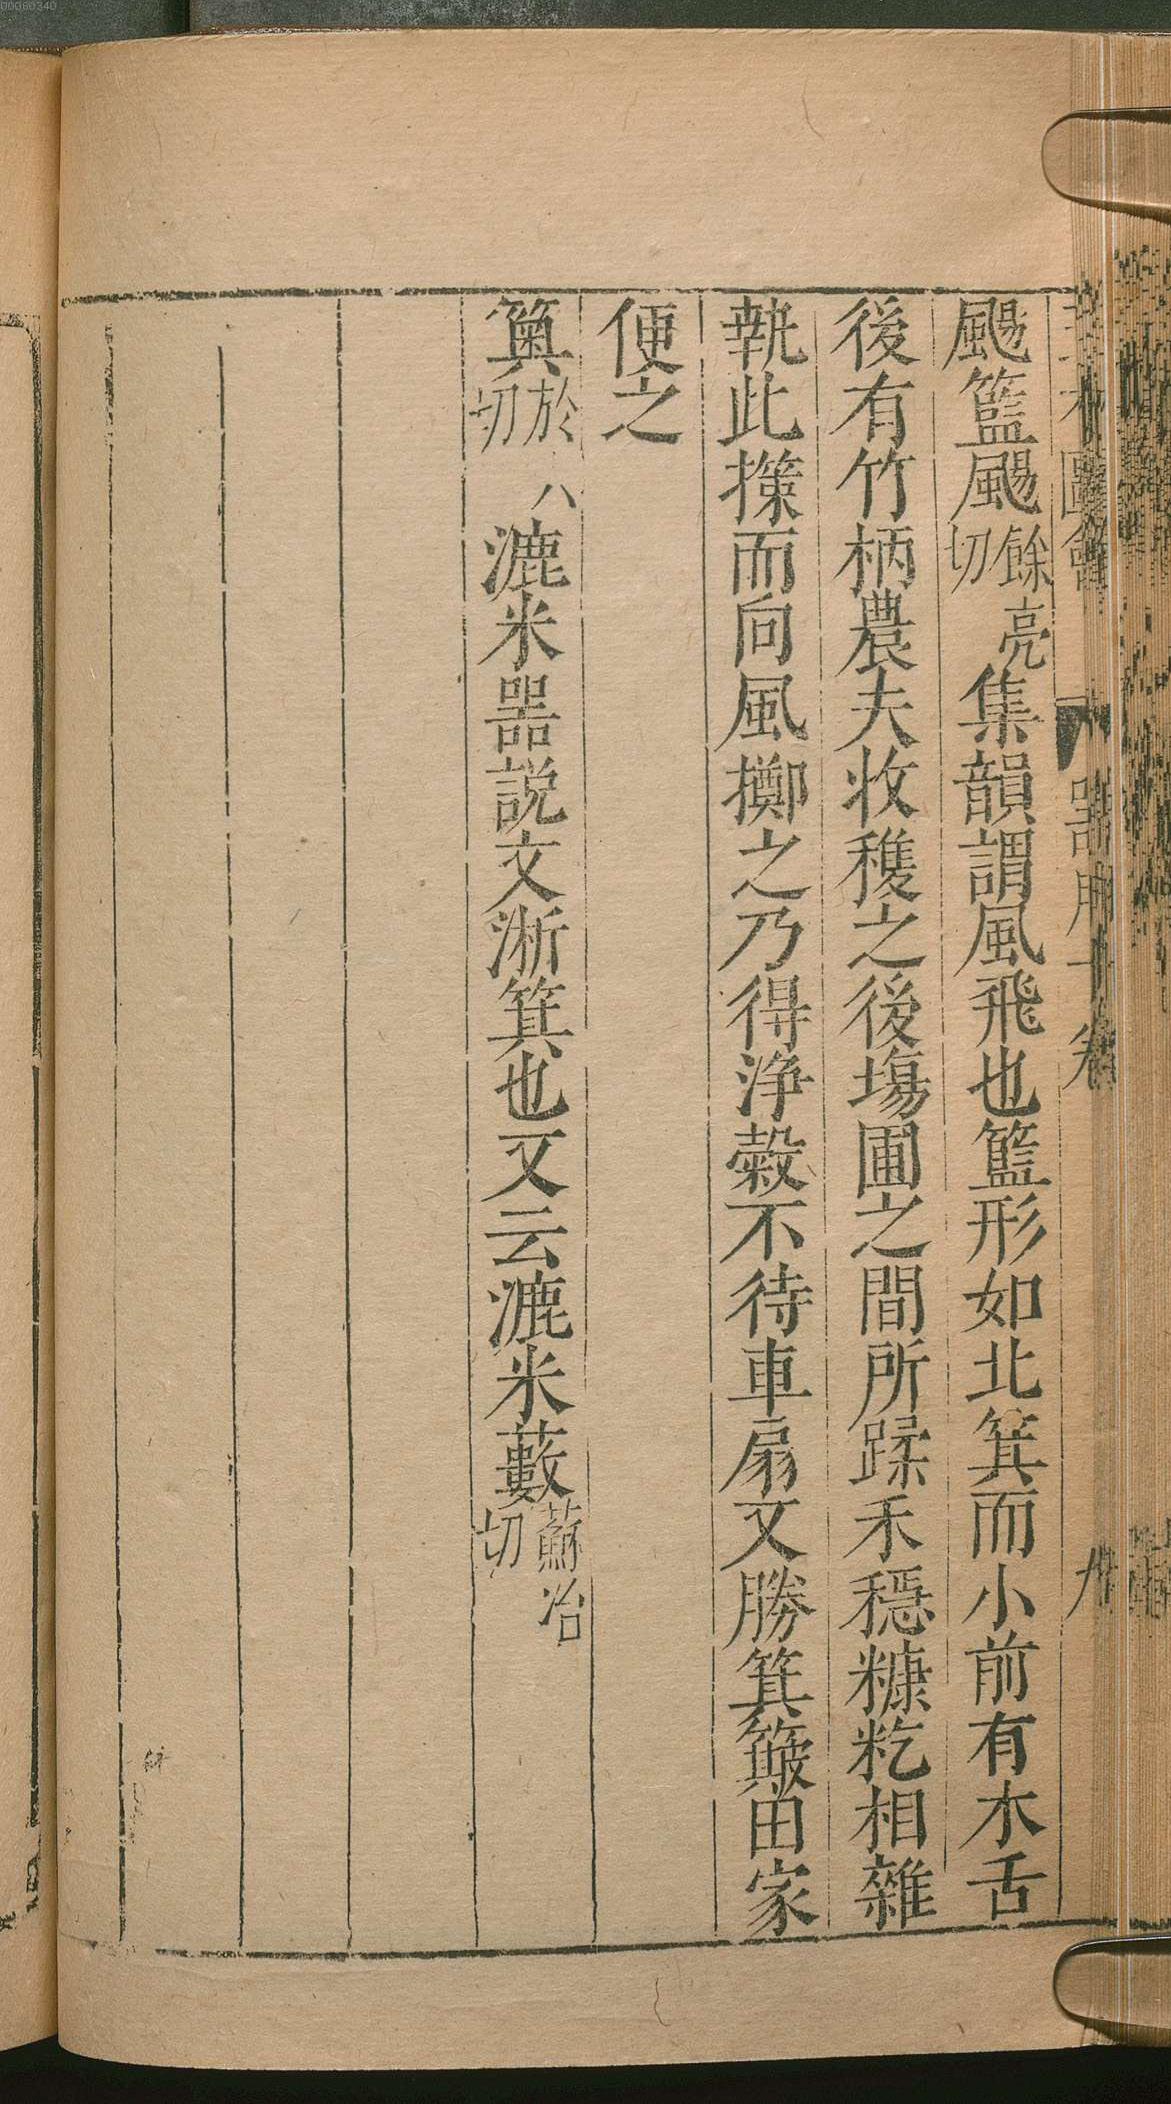 颺籃颺餘亮切集韻謂風飛也籃形如北箕而小前有木舌
後有竹柄農夫收穫之後塲圃之間所蹂禾穩糠籺相雜
執此㩇而向風擲之乃得淨穀不待車扇又勝箕簸田家
便之
籅於八切漉米器説文淅箕也又云漉米藪蘇治切
00060340